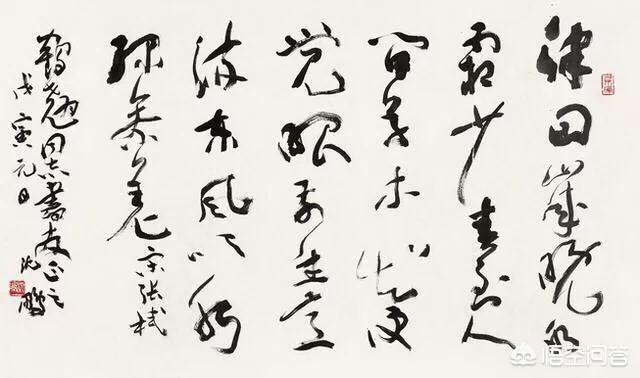 律回岁晚冰
霜少春到人
间草木知便
觉眼前生意
满东风吹水
绿参差 宋张栻
鹤翘同志书教正之
戊寅元日 沈鹏
悟空问答